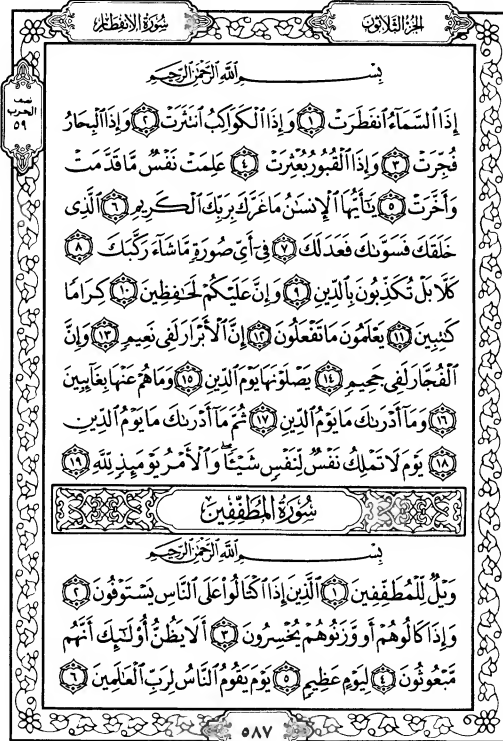 الجزء الثلاثون
سورة الانفطار
نصف
الحزب
٥٩
بِسْمِ اللَّهِ الرَّحْمَٰنِ الرَّحِيمِ
إِذَا السَّمَاءُ انفَطَرَتْ ١ وَإِذَا الْكَوَاكِبُ انتَثَرَتْ ٢ وَإِذَا الْبِحَارُ
فُجِّرَتْ ٣ وَإِذَا الْقُبُورُ بُعْثِرَتْ ٤ عَلِمَتْ نَفْسٌ مَّا قَدَّمَتْ
وَأَخَّرَتْ ٥ يَٰأَيُّهَا الْإِنسَٰنُ مَا غَرَّكَ بِرَبِّكَ الْكَرِيمِ ٦ الَّذِى
خَلَقَكَ فَسَوَّىٰكَ فَعَدَلَكَ ٧ فِىٓ أَىِّ صُورَةٍ مَّا شَآءَ رَكَّبَكَ ٨
كَلَّا بَلْ تُكَذِّبُونَ بِالدِّينِ ٩ وَإِنَّ عَلَيْكُمْ لَحَٰفِظِينَ ١٠ كِرَامًا
كَٰتِبِينَ ١١ يَعْلَمُونَ مَا تَفْعَلُونَ ١٢ إِنَّ الْأَبْرَارَ لَفِى نَعِيمٍ ١٣ وَإِنَّ
الْفُجَّارَ لَفِى جَحِيمٍ ١٤ يَصْلَوْنَهَا يَوْمَ الدِّينِ ١٥ وَمَا هُمْ عَنْهَا بِغَآئِبِينَ
١٦ وَمَآ أَدْرَىٰكَ مَا يَوْمُ الدِّينِ ١٧ ثُمَّ مَآ أَدْرَىٰكَ مَا يَوْمُ الدِّينِ
١٨ يَوْمَ لَا تَمْلِكُ نَفْسٌ لِّنَفْسٍ شَيْـًٔا ۖ وَالْأَمْرُ يَوْمَئِذٍ لِّلَّهِ ١٩
سورة المطففين
بِسْمِ اللَّهِ الرَّحْمَٰنِ الرَّحِيمِ
وَيْلٌ لِّلْمُطَفِّفِينَ ١ الَّذِينَ إِذَا اكْتَالُوا عَلَى النَّاسِ يَسْتَوْفُونَ ٢
وَإِذَا كَالُوهُمْ أَو وَّزَنُوهُمْ يُخْسِرُونَ ٣ أَلَا يَظُنُّ أُولَٰٓئِكَ أَنَّهُم
مَّبْعُوثُونَ ٤ لِيَوْمٍ عَظِيمٍ ٥ يَوْمَ يَقُومُ النَّاسُ لِرَبِّ الْعَٰلَمِينَ ٦
٥٨٧